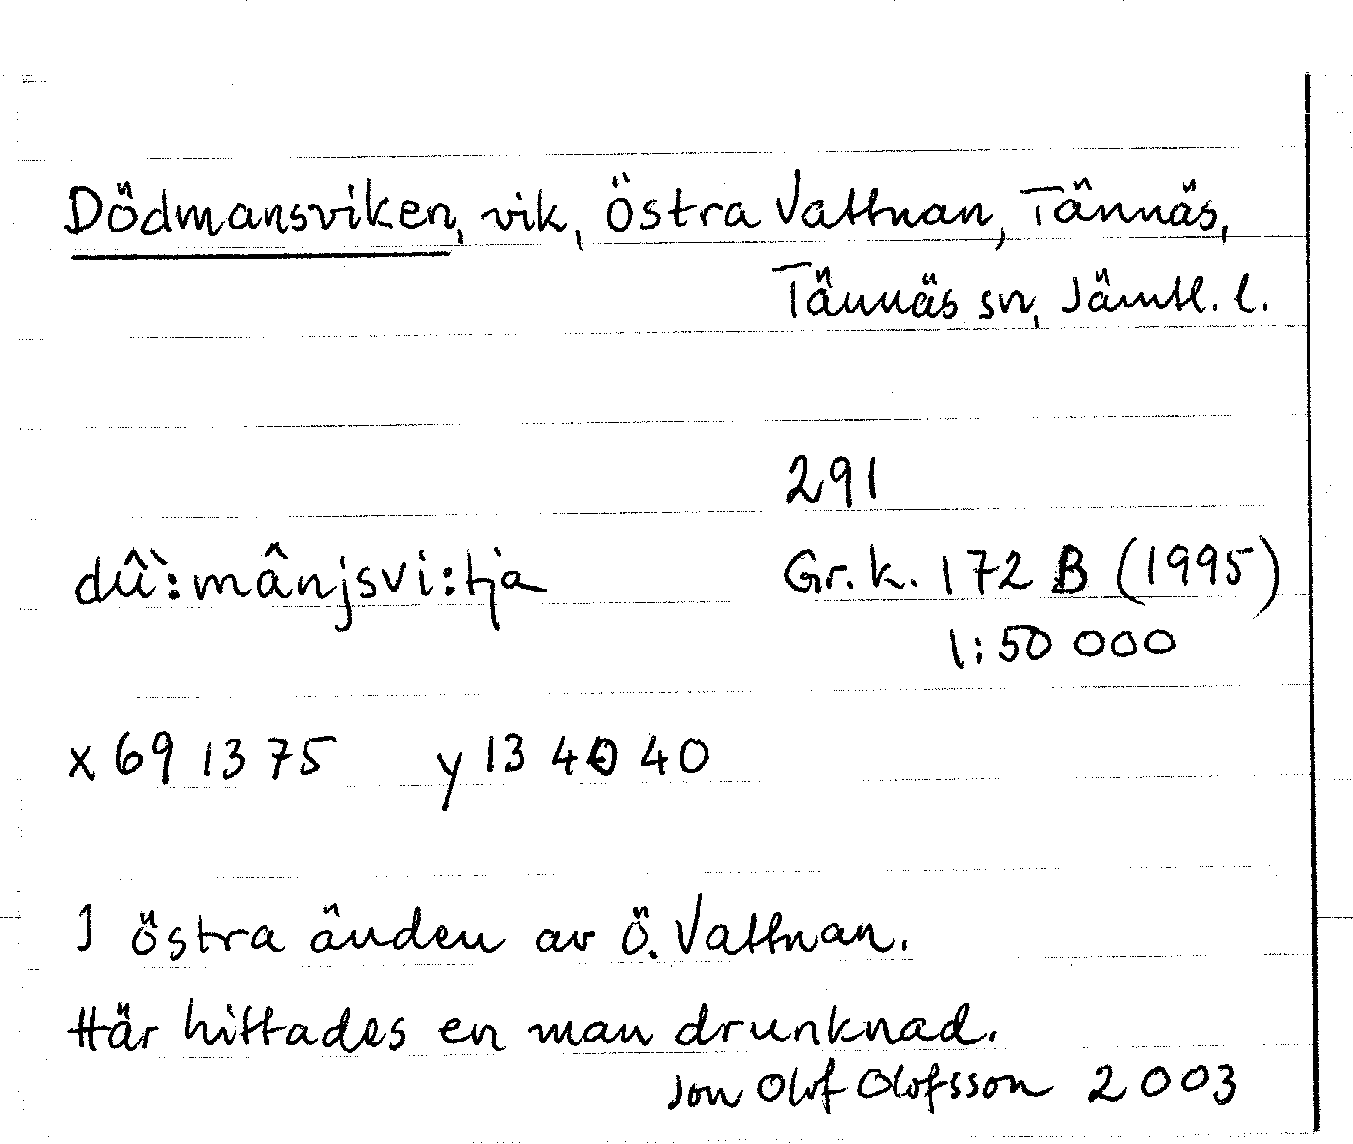 Dödmansviken, vik, Östra Vattnan, Tännäs,
Tännäs sn, Jämtl. l.
291
dû̀:mânjsvi:tja Gr.k. 172 B (1995)
1:50 000
x 69 13 75 y 13 40 40
I östra änden av Ö. Vattnan.
Här hittades en man drunknad.
Jon Olof Olofsson 2003